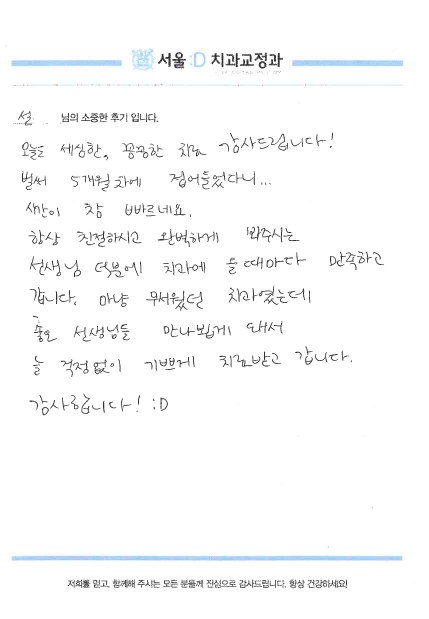 서울:D 치과교정과
설 님의 소중한 후기 입니다.
오늘도 세심한, 꼼꼼한 치료 감사드립니다!
벌써 5개월차에 접어들었다니...
시간이 참 빠르네요.
항상 친절하시고 완벽하게 봐주시는
선생님 덕분에 치과에 올때마다 만족하고
갑니다. 마냥 무서웠던 치과였는데
좋은 선생님들 만나뵙게 돼서
늘 걱정없이 기쁘게 치료받고 갑니다.
감사합니다! :D
저희를 믿고, 함께해 주시는 모든 분들께 진심으로 감사드립니다. 항상 건강하세요!